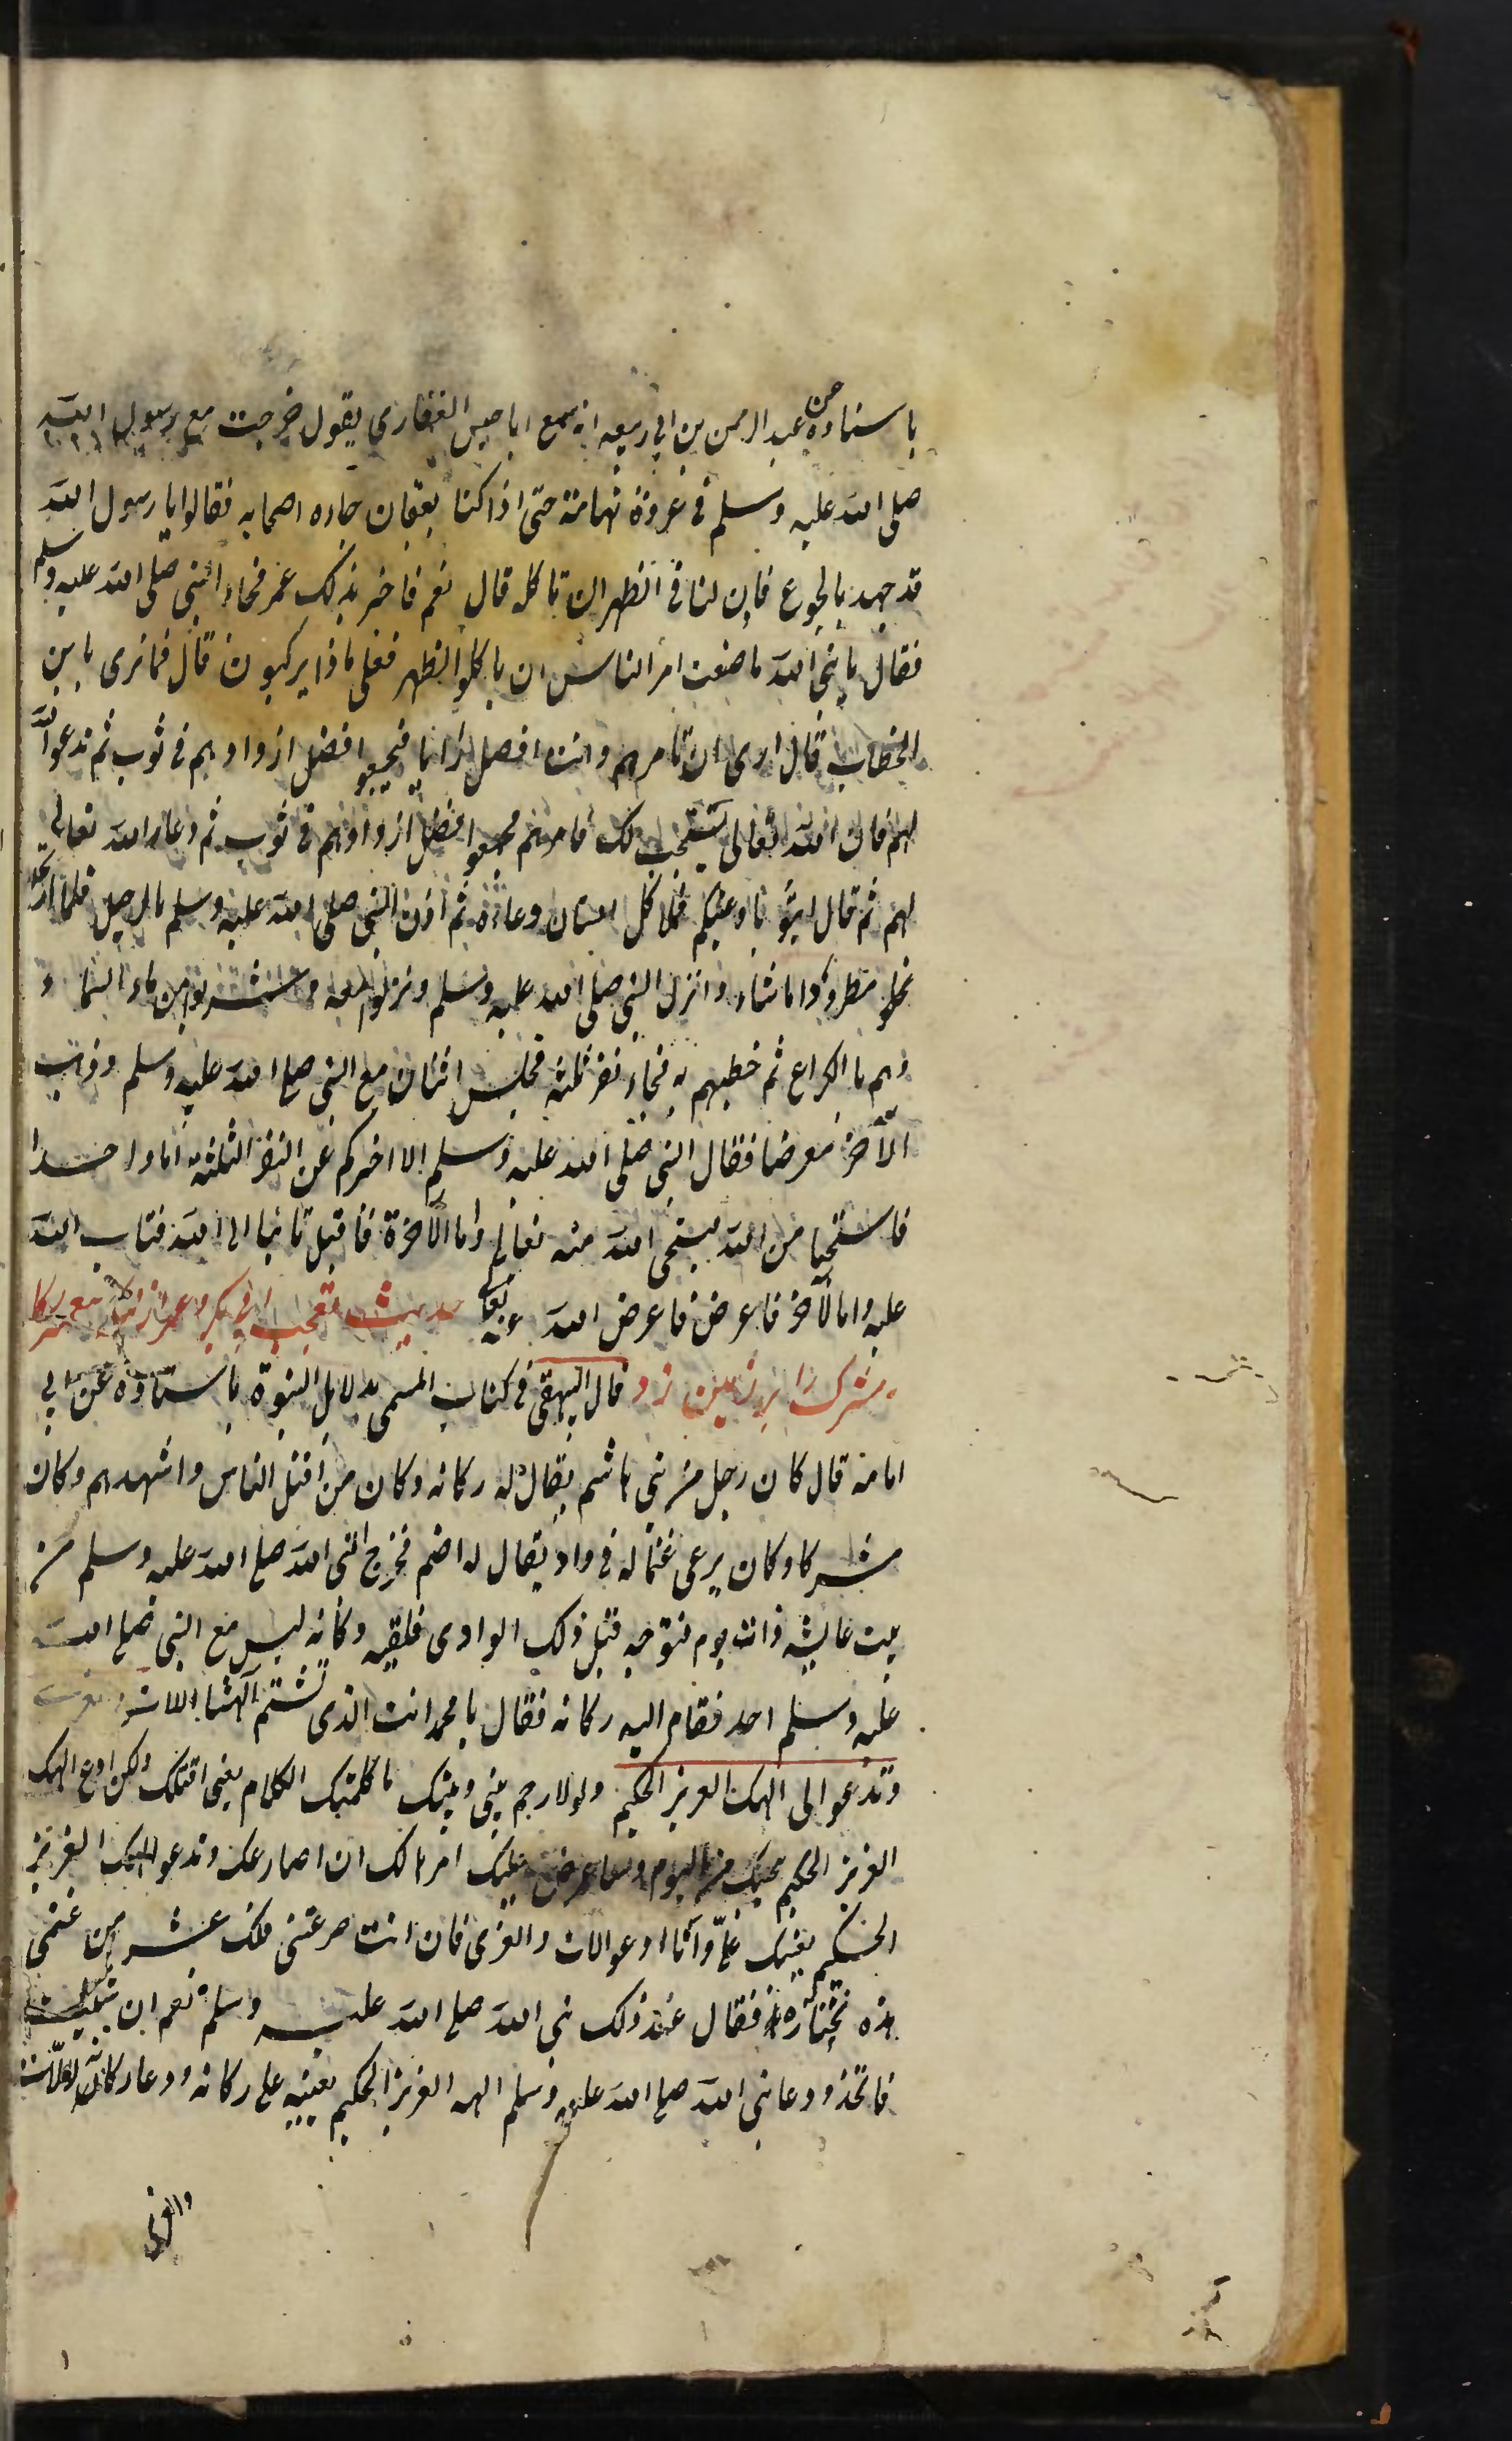 باسناده عن عبد الرحمن بن ابي ربيعه انه سمع ابا حبيس الغفاري يقول خرجت مع رسول الله
صلى الله عليه وسلم فى غزوة تهامة حتى اذا كنا بعفان جاءه اصحابه فقالوا يا رسول الله
قد جهد بالجوع فاذن لنا فى الظهر ان ناكله قال نعم فاخبر بذلك عمر فجاء النبى صلى الله عليه وسلم
فقال يا نبى الله ما صنعت امر الناس ان ياكلوا الظهر فعلى ماذا يركبون قال فما ترى يا بن
الخطاب قال ارى ان تامرهم وانت افضل رايا فيجمعو افضل ازوادهم فى ثوب ثم تدعو الله
لهم فان الله تعالى يستجيب لك فامرهم فجمعو افضل ازوادهم فى ثوب ثم دعا الله تعالى
لهم ثم قال ايتو باوعيتكم فملا كل انسان وعائه ثم اذن النبى صلى الله عليه وسلم بالرحيل فلما ارتحلو
مطروا ما شاء وانزل النبى صلى الله عليه وسلم ونزلو معه وشربو من ماء السماء و
هم بالكراع ثم خطبهم به فجاء نفر ثلثه فجلس اثنان مع النبى صلى الله عليه وسلم وذهب
الآخر معرضا فقال النبى صلى الله عليه وسلم الا اخبركم عن النفر الثلثه اما واحدا
فاستحيا من الله يستحى الله منه تعالى واما الآخرة فاقبل تائبا الى الله فتاب الله
عليه واما الآخر فاعرض فاعرض الله عنه حديث تعجب ابى بكر وعمر
مشرك را بر زمين زد قال البيهقى فى كتاب المسمى بدلايل النبوة باسناده عن ابي
امامه قال كان رجل من بنى هاشم يقال له ركانه وكان من افتل الناس واشهدهم وكان
مشركا وكان يرعى غنما له فى واد يقال له اضم فخرج النبى الله صلى الله عليه وسلم من
بيت عايشه ذات يوم فتوجه قبل ذلك الوادى فلقيه ركانه ليس مع النبى صلى الله
عليه وسلم احد فقام اليه ركانه فقال يا محمد انت الذى تشتم آلهتنا اللات
وتدعو الى الهك العزيز الحكيم ولولا رحم بينى وبينك ما كلمتك الكلام يعنى اقتلك ولكن ادع الهك
العزيز الحكيم ينجيك منى اليوم وساعرض عليك امرا لك ان اصارعك وتدعو الهك العزيز
الحكيم يعينك علىّ وانا ادعو اللات والعزى فان انت صرعتنى فلك عشر من غنمى
هذه تختارها فقال عند ذلك نبى الله صلى الله عليه وسلم نعم ان شئت
فاتخذو ودعا نبى الله صلى الله عليه وسلم الهه العزيز الحكيم يعينه على ركانه ودعا ركانه اللات
والعزى